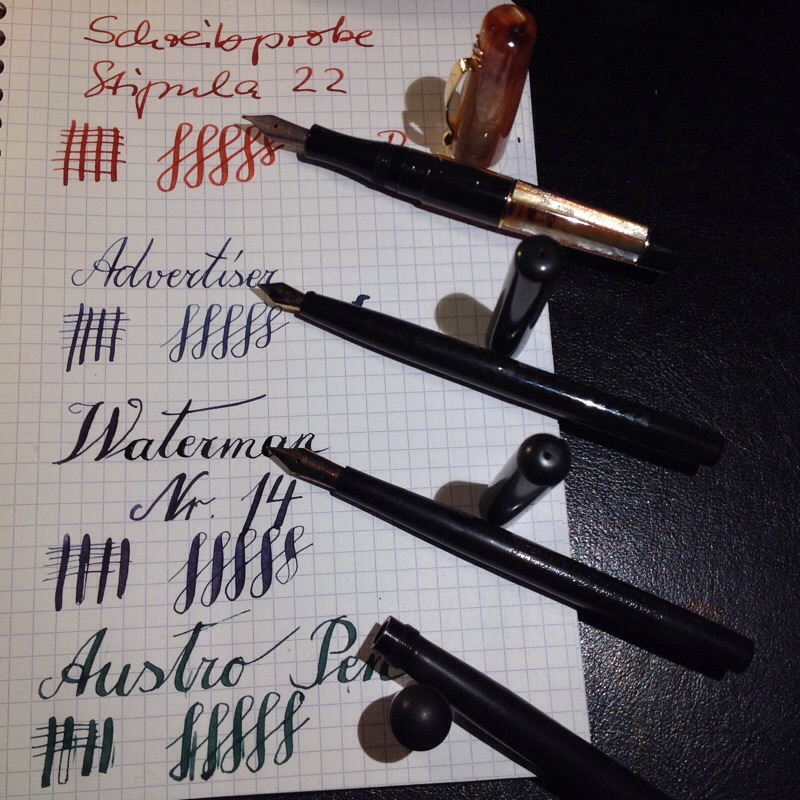 Schreibprobe
Stipula 22
Advertiser
Waterman
Nr. 14
Austro Pen